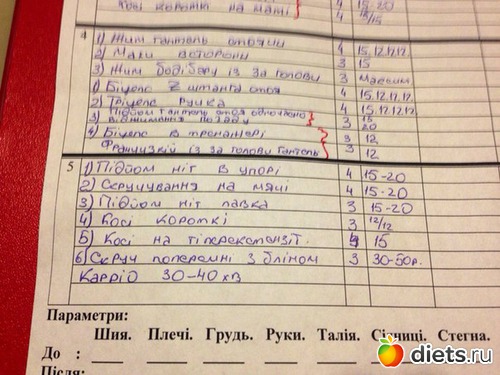 Косі короткі на мячі 4 15-20
4 15/15
4 1) Жим гантель стоячи 4 15.12.12.12
2) Махи в сторони 3 15
3) Жим бодібару із за голови 3 максим
1) Біцепс штанга стоя 4 15.12.12.12.
2) Тріцепс ручка 4 15.12.12.12.
Підйом гантель стоя одночасно 3 15
3) Віджимання позаду 20
4) Біцепс в тренажері 3 12
Французкий із за голови гантель 3 12
5 1) Підйом ніг в упорі 4 15-20
2) Скручування на мячі 4 15-20
3) Підйом ніг лавка 3 15-20
4) Косі короткі 3 12/12
5) Косі на гіперекстензії 4 15
6) Скруч поперемні з бліном 3 30-50р.
Кардіо 30-40 хв
Параметри:
Шия. Плечі. Грудь. Руки. Талія. Сідниці. Стегна.
До :
Після:
diets.ru